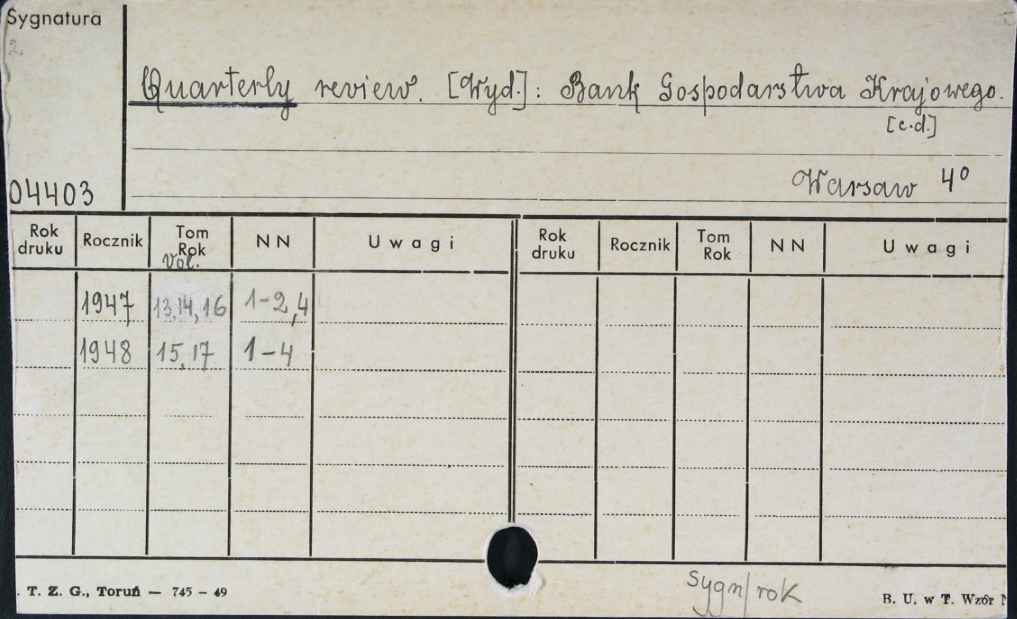 Sygnatura
2.
Quarterly review. [Wyd.]: Bank Gospodarstwa Krajowego.
[c.d.]
04403
Warsaw 4°
Rok druku Rocznik Tom Rok Vol. NN Uwagi Rok druku Rocznik Tom Rok NN Uwagi
1947 13,14,16 1-2,4
1948 15,17 1-4
. T. Z. G., Toruń — 745 - 49
sygn/rok
B. U. w T. Wzór